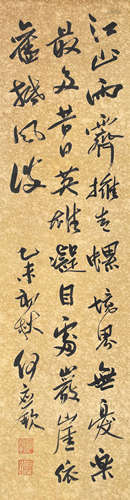 江山雨霽擁青螺境界無憂樂
最多昔日英雄凝目處巖崖依
舊撼風波
乙未秋 何应欽